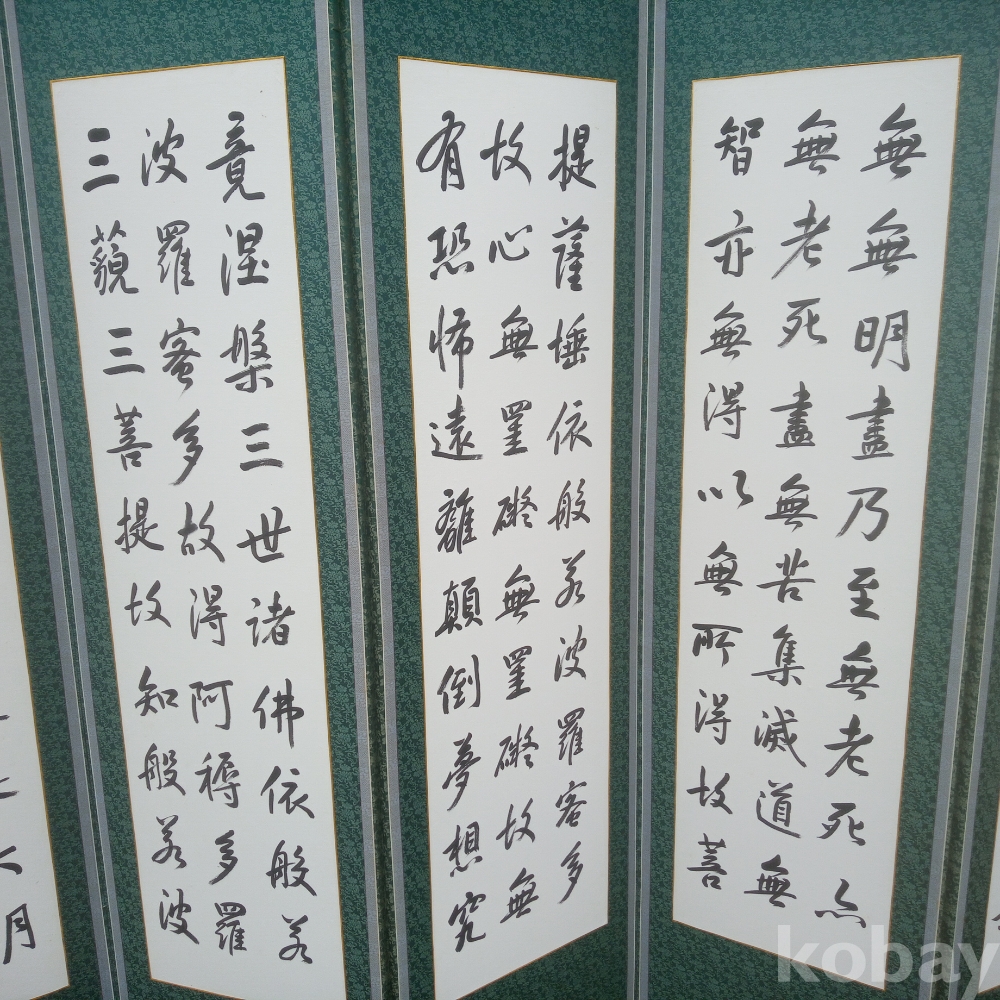 無無明盡乃至無老死亦
無老死盡無苦集滅道無
智亦無得以無所得故菩
提薩埵依般若波羅蜜多
故心無罣礙無罣礙故無
有恐怖遠離顛倒夢想究
竟涅槃三世諸佛依般若
波羅蜜多故得阿耨多羅
三藐三菩提故知般若波
月
kobay